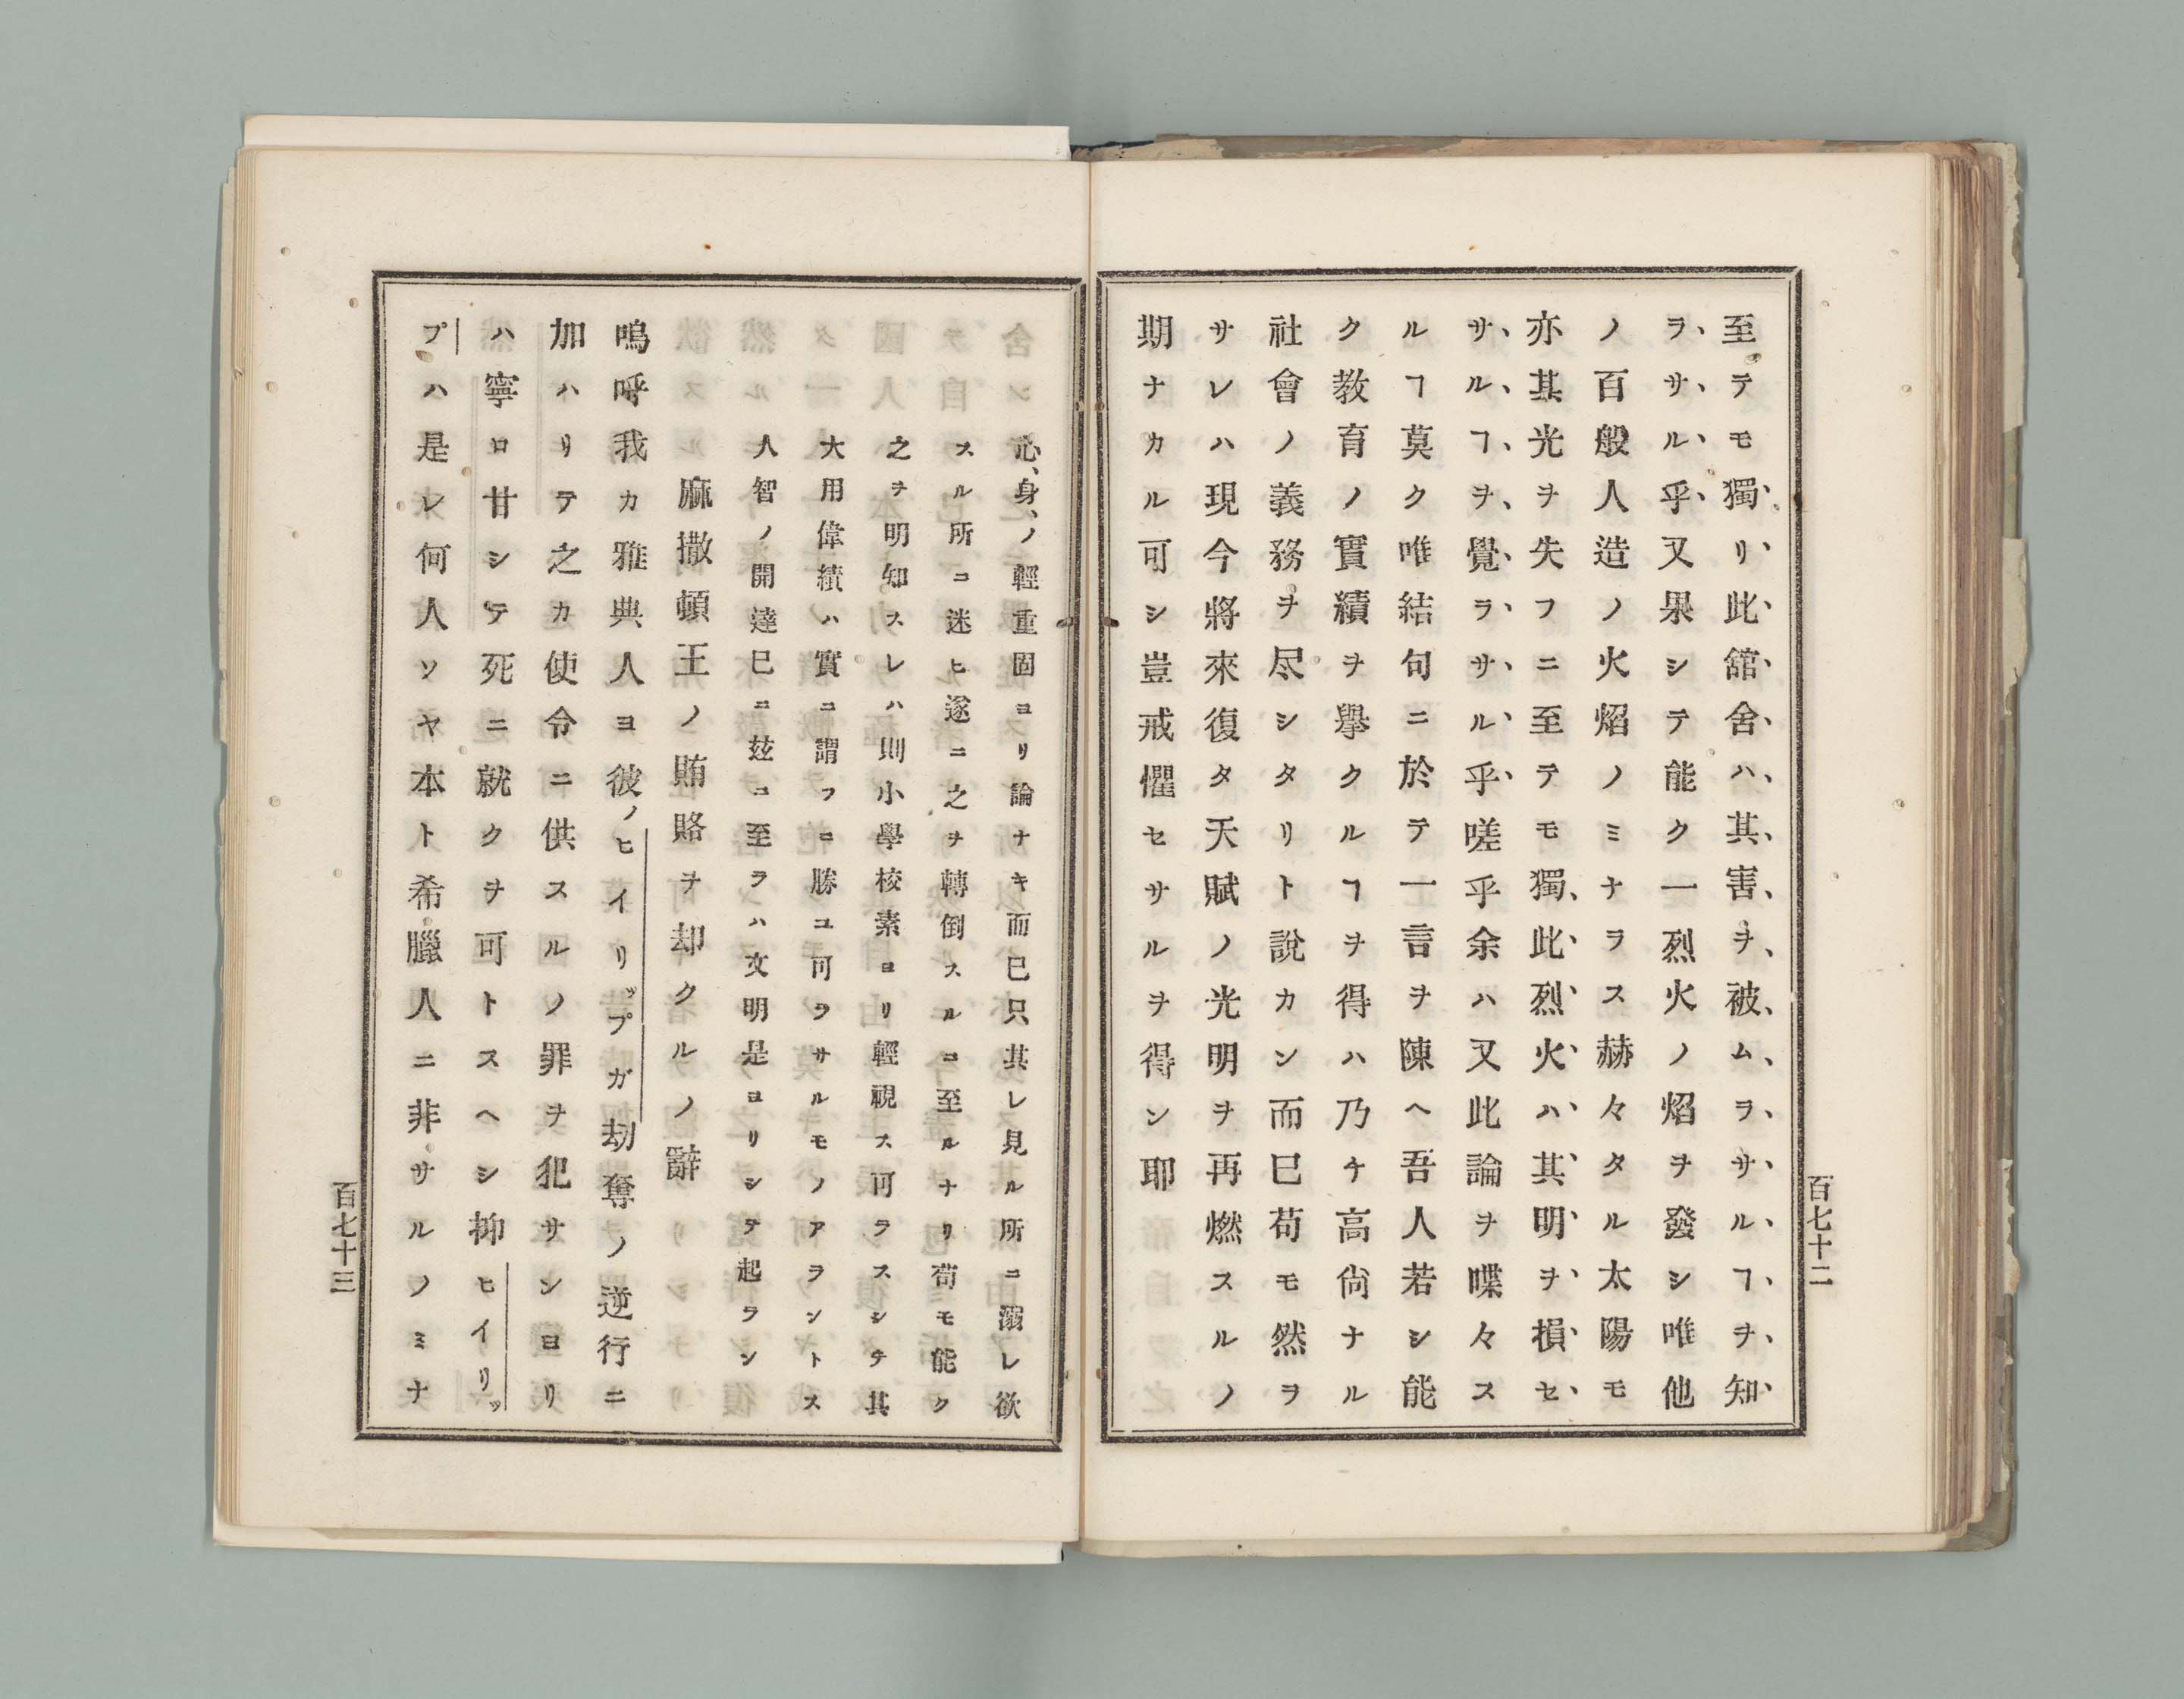 至テモ獨リ此舘舍ハ其害ヲ被ムラサルヿヲ知
ラサル乎又果シテ能ク一烈火ノ焰ヲ發シ唯他
ノ百般人造ノ火焰ノミナラス赫々タル太陽モ
亦其光ヲ失フニ至テモ獨此烈火ハ其明ヲ損セ
サルヿヲ覺ラサル乎嗟乎余ハ又此論ヲ喋々ス
ルヿ莫ク唯結句ニ於テ一言ヲ陳ヘ吾人若シ能
ク教育ノ實績ヲ擧クルヿヲ得ハ乃ケ高尙ナル
社會ノ義務ヲ尽シタリト說カン而已苟モ然ラ
サレハ現今將來復タ天賦ノ光明ヲ再燃スルノ
期ナカル可シ豈戒懼セサルヲ得ン耶
百七十二
心身ノ輕重固ヨリ論ナキ而已只其レ見ル所ニ溺レ欲
スル所ニ迷ヒ遂ニ之ヲ轉倒スルニ至ルナリ苟モ能ク
之ヲ明知スレハ則小學校素ヨリ輕視ス可ラスシテ其
大用偉績ハ實ニ謂フニ勝ユ可ラサルモノアラントス
人智ノ開達已ニ玆ニ至ラハ文明是ヨリシテ起ラン
麻撒頓王ノ賄賂ヲ却クルノ辭
嗚呼我カ雅典人ヨ彼ノヒイリップガ劫奪ノ逆行ニ
加ハリテ之カ使令ニ供スルノ罪ヲ犯サンヨリ
ハ寧ロ甘シテ死ニ就クヲ可トスヘシ抑ヒイリッ
プハ是レ何人ソヤ本ト希臘人ニ非サルノミナ
百七十三